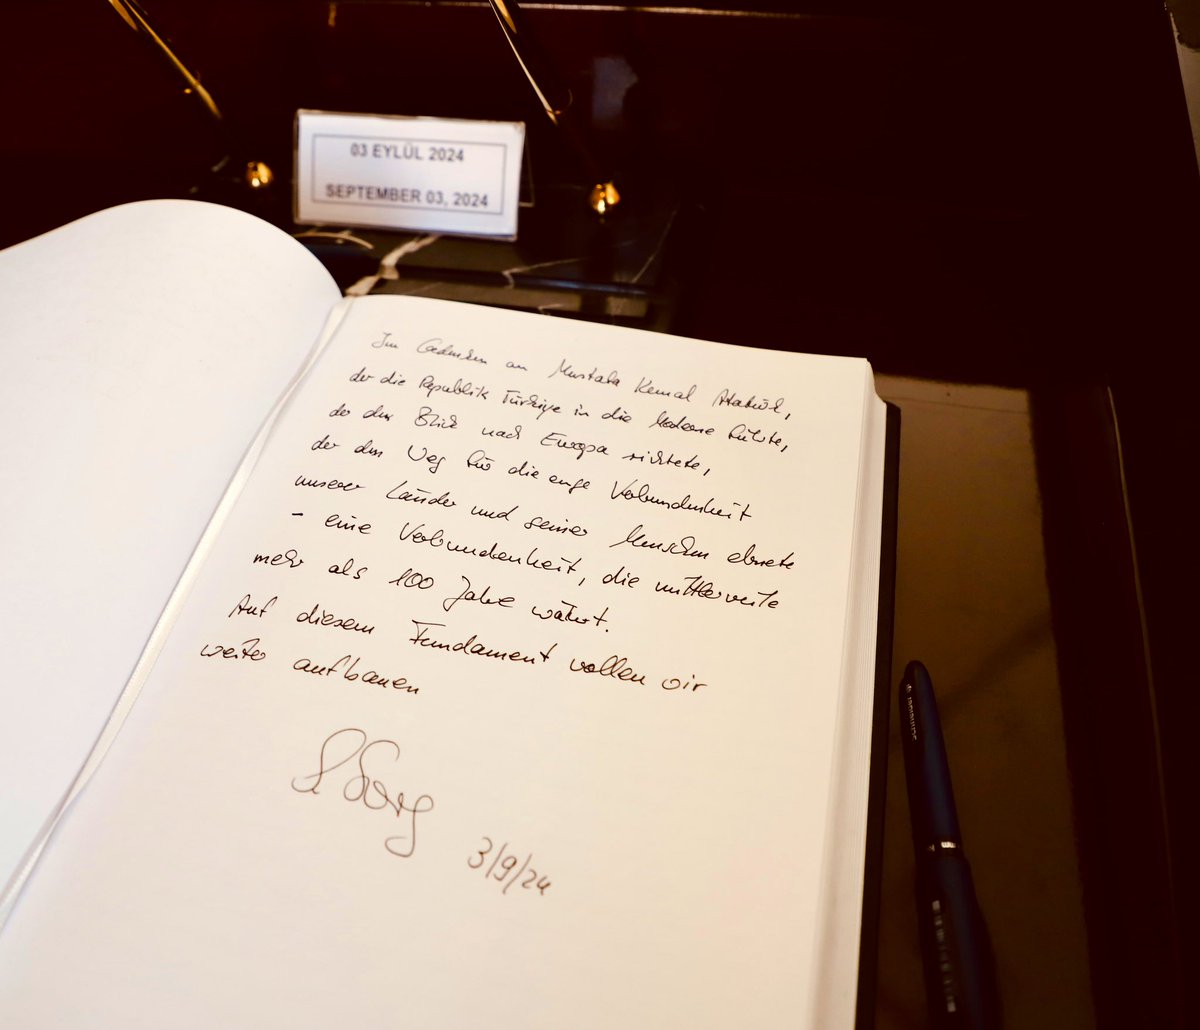 03 EYLÜL 2024
SEPTEMBER 03, 2024
Im Gedenken an Mustafa Kemal Atatürk,
der die Republik Türkiye in die Moderne führte,
der den Blick nach Europa richtete,
der den Weg für die enge Verbundenheit
unserer Länder und seiner Menschen ebnete
– eine Verbundenheit, die mittlerweile
mehr als 100 Jahre währt.
Auf diesem Fundament wollen wir
weiter aufbauen
3/9/24